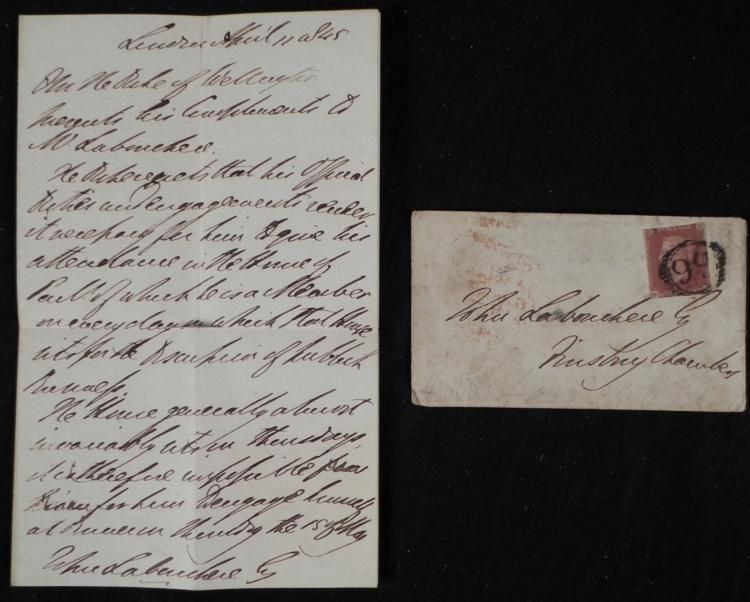 London April 11 1845
F M The Duke of Wellington
presents his Compliments to
Mr Labouchere.
He Duke regrets that his Official
Duties and engagements render
it necessary for him to give his
attendance in the House of
of which he is a Member
on every day on which that House
sits for the Discussion of publick
Business.
The House generally almost
invariably sits on Thursdays,
it is therefore impossible
for him to engage himself
at dinner on Thursday the 15 of May
John Labouchere Esq
John Labouchere Esq
Finsbury Chambers